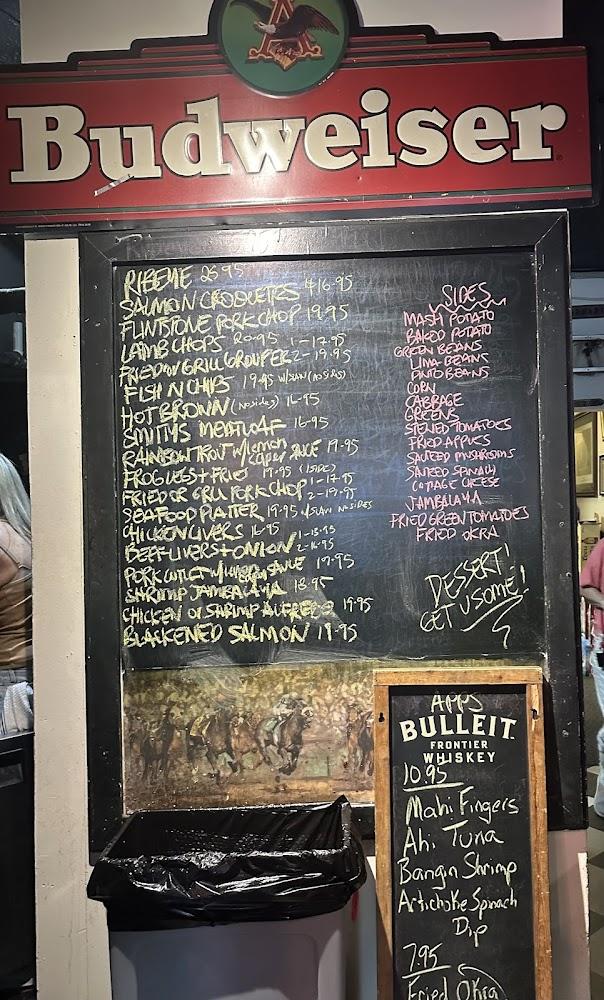 Budweiser
A
RIBEYE 26.95
SALMON CROQUETTES 16.95
FLINTSTONE PORK CHOP 19.95
LAMB CHOPS 20.95 1-17.95
FRIED OR GRILL GROUPER 2-19.95
FISH N CHIPS 19.95 w/SLAW (NO SIDES)
HOT BROWN (no sides) 16.95
SMITHS MEATLOAF 16.95
RAINBOW TROUT w/Lemon CAPER SAUCE 19.95
FROG LEGS + FRIES 19.95 (1 SIDE)
FRIED OR GRILL PORK CHOP 1-17.95 2-19.95
SEAFOOD PLATTER 19.95 w/SLAW NO SIDES
CHICKEN LIVERS 16.95
BEEF LIVERS + ONION 2-16.95
PORK CUTLET SAUCE 17.95
SHRIMP JAMBALAYA 18.95
CHICKEN OR SHRIMP ALFREDO 19.95
BLACKENED SALMON 19.95
SIDES
MASH POTATO
BAKED POTATO
GREEN BEANS
LIMA BEANS
PINTO BEANS
CORN
CABBAGE
GREENS
STEWED TOMATOES
FRIED APPLES
SAUTEED MUSHROOMS
SAUTEED SPINACH
COTTAGE CHEESE
JAMBALAYA
FRIED GREEN TOMATOES
FRIED OKRA
DESSERT!
GET U SOME!
APPS
BULLEIT
FRONTIER
WHISKEY
10.95
Mahi Fingers
Ahi Tuna
Bangn Shrimp
Artichoke Spinach
Dip
7.95
Fried Okra